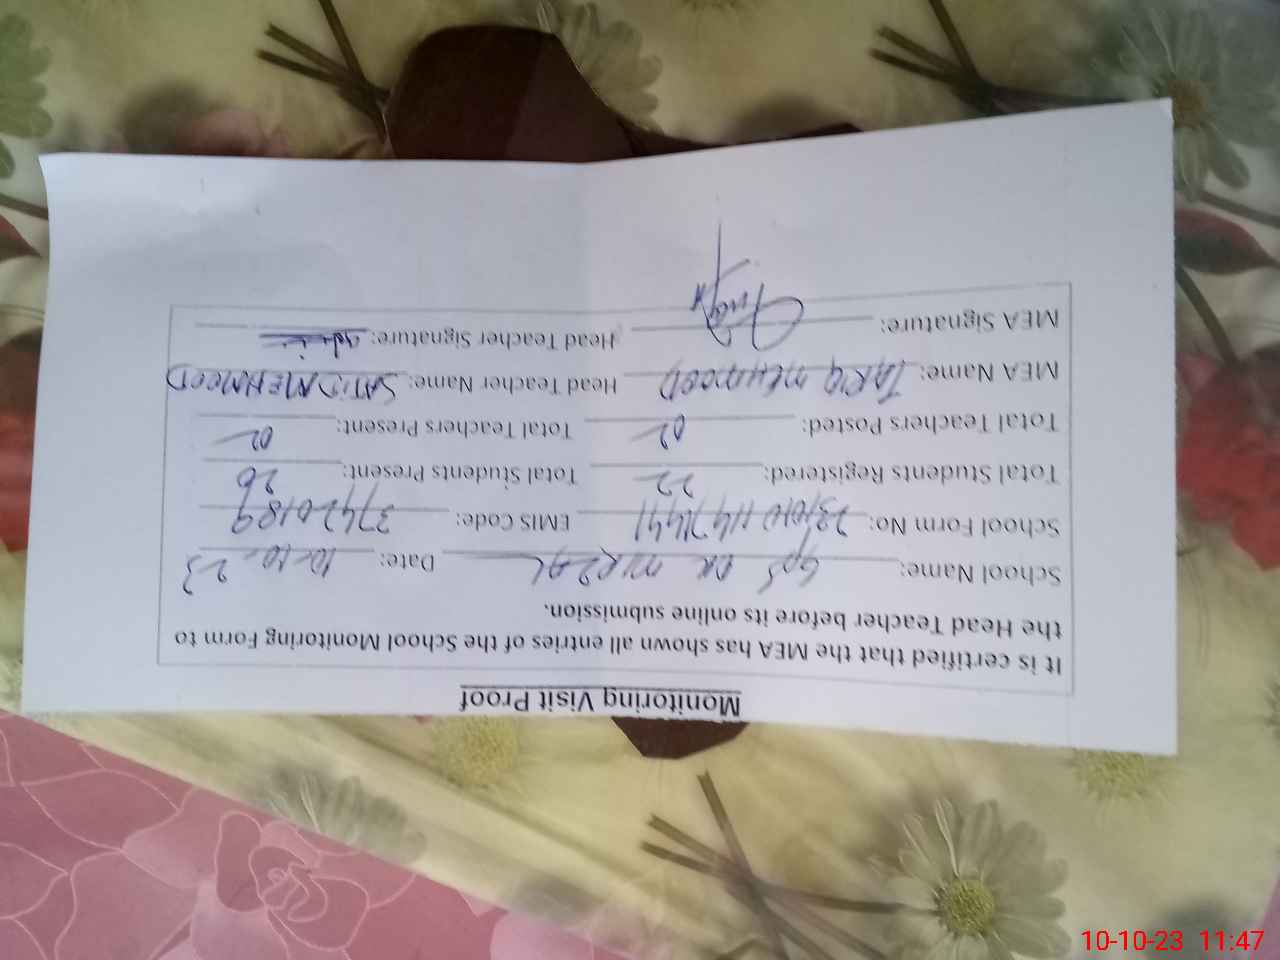 Monitoring Visit Proof
It is certified that the MEA has shown all entries of the School Monitoring Form to
the Head Teacher before its online submission.
School Name: GPS DK MIRZAL Date: 10-10-23
School Form No: EMIS Code: 37420189
Total Students Registered: 22 Total Students Present: 20
Total Teachers Posted: 02 Total Teachers Present: 02
MEA Name: TARIQ MEHMOOD Head Teacher Name: SAJID MEHMOOD
MEA Signature: Head Teacher Signature:
10-10-23 11:47